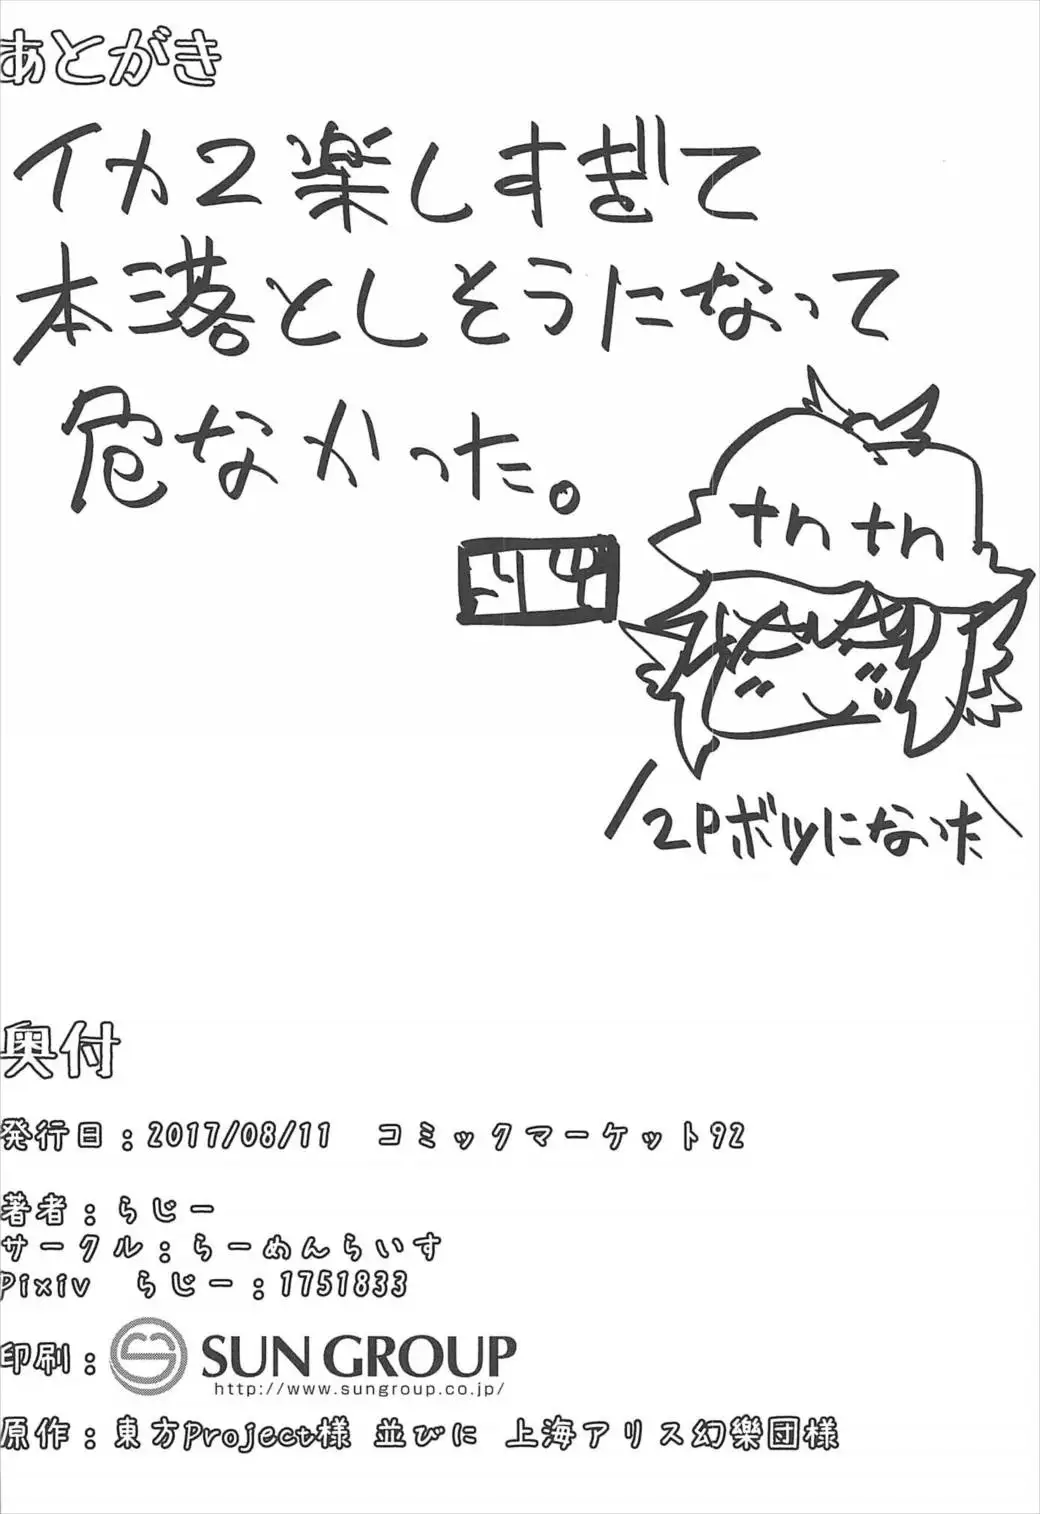 あとがき
イカ2楽しすぎて
本落としそうになって
危なかった。
tntn
2Pボツになった
奥付
発行日:2017/08/11 コミックマーケット92
著者:らじー
サークル:らーめんらいす
Pixiv らじー:1751833
印刷:SUN GROUP
http://www.sungroup.co.jp/
原作:東方Project様 並びに 上海アリス幻樂団様